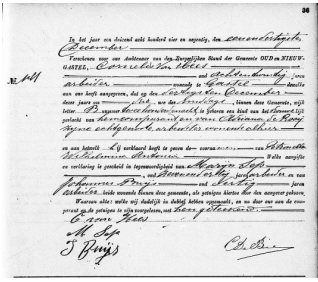 36
In het jaar duizend acht honderd vier en negentig, den eenendertigsten
December
Verscheen voor ons Ambtenaar van den Burgerlijken Stand der Gemeente OUD en NIEUW-
GASTEL, Cornelis van Hees
oud achtentwintig jaren
arbeider wonende te Gastel dewelke
aan ons heeft aangegeven, dat op den dertigsten December
dezes jaars, des ten ure, binnen deze Gemeente, wijk
B
van hem comparant en van Adriana de Rooy
zijne echtgenoote arbeidster wonende alhier
en aan hetwelk hij verklaard heeft te geven de voornamen van
Wilhelmina Antonia Welke aangifte
en verklaring is geschied in tegenwoordigheid van Marijn Sep
oud jaren, arbeider en van
Johannes Buijs oud dertig jaren,
arbeider beide wonende binnen deze gemeente, als getuigen hiertoe door den aangever gekozen.
Waarvan akte, welke wij dadelijk in dubbel hebben opgemaakt, en na daar aan den com-
parant en de getuigen te zijn voorgelezen, met hen geteekend.
C van Hees
M Sep
J Buijs